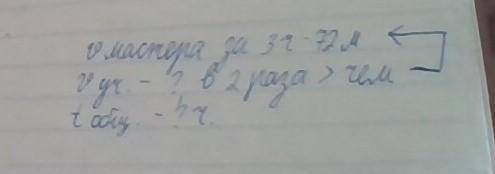 v мастера за 3 ч - 72 м
v уч. - ? в 2 раза > чем
t общ. - ? ч.